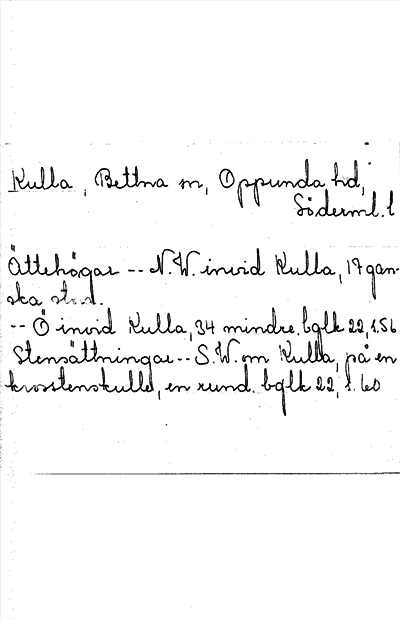 Kulla, Bettna sn, Oppunda hd,
Söderml. l
Ättehögar -- N.W. invid Kulla, 17 gan-
ska
-- Ö invid Kulla, 34 mindre. bglk 22, s. 56
Stensättningar -- S.W. om Kulla, på en
krosstenskulle, en rund. bglk 22, s. 60